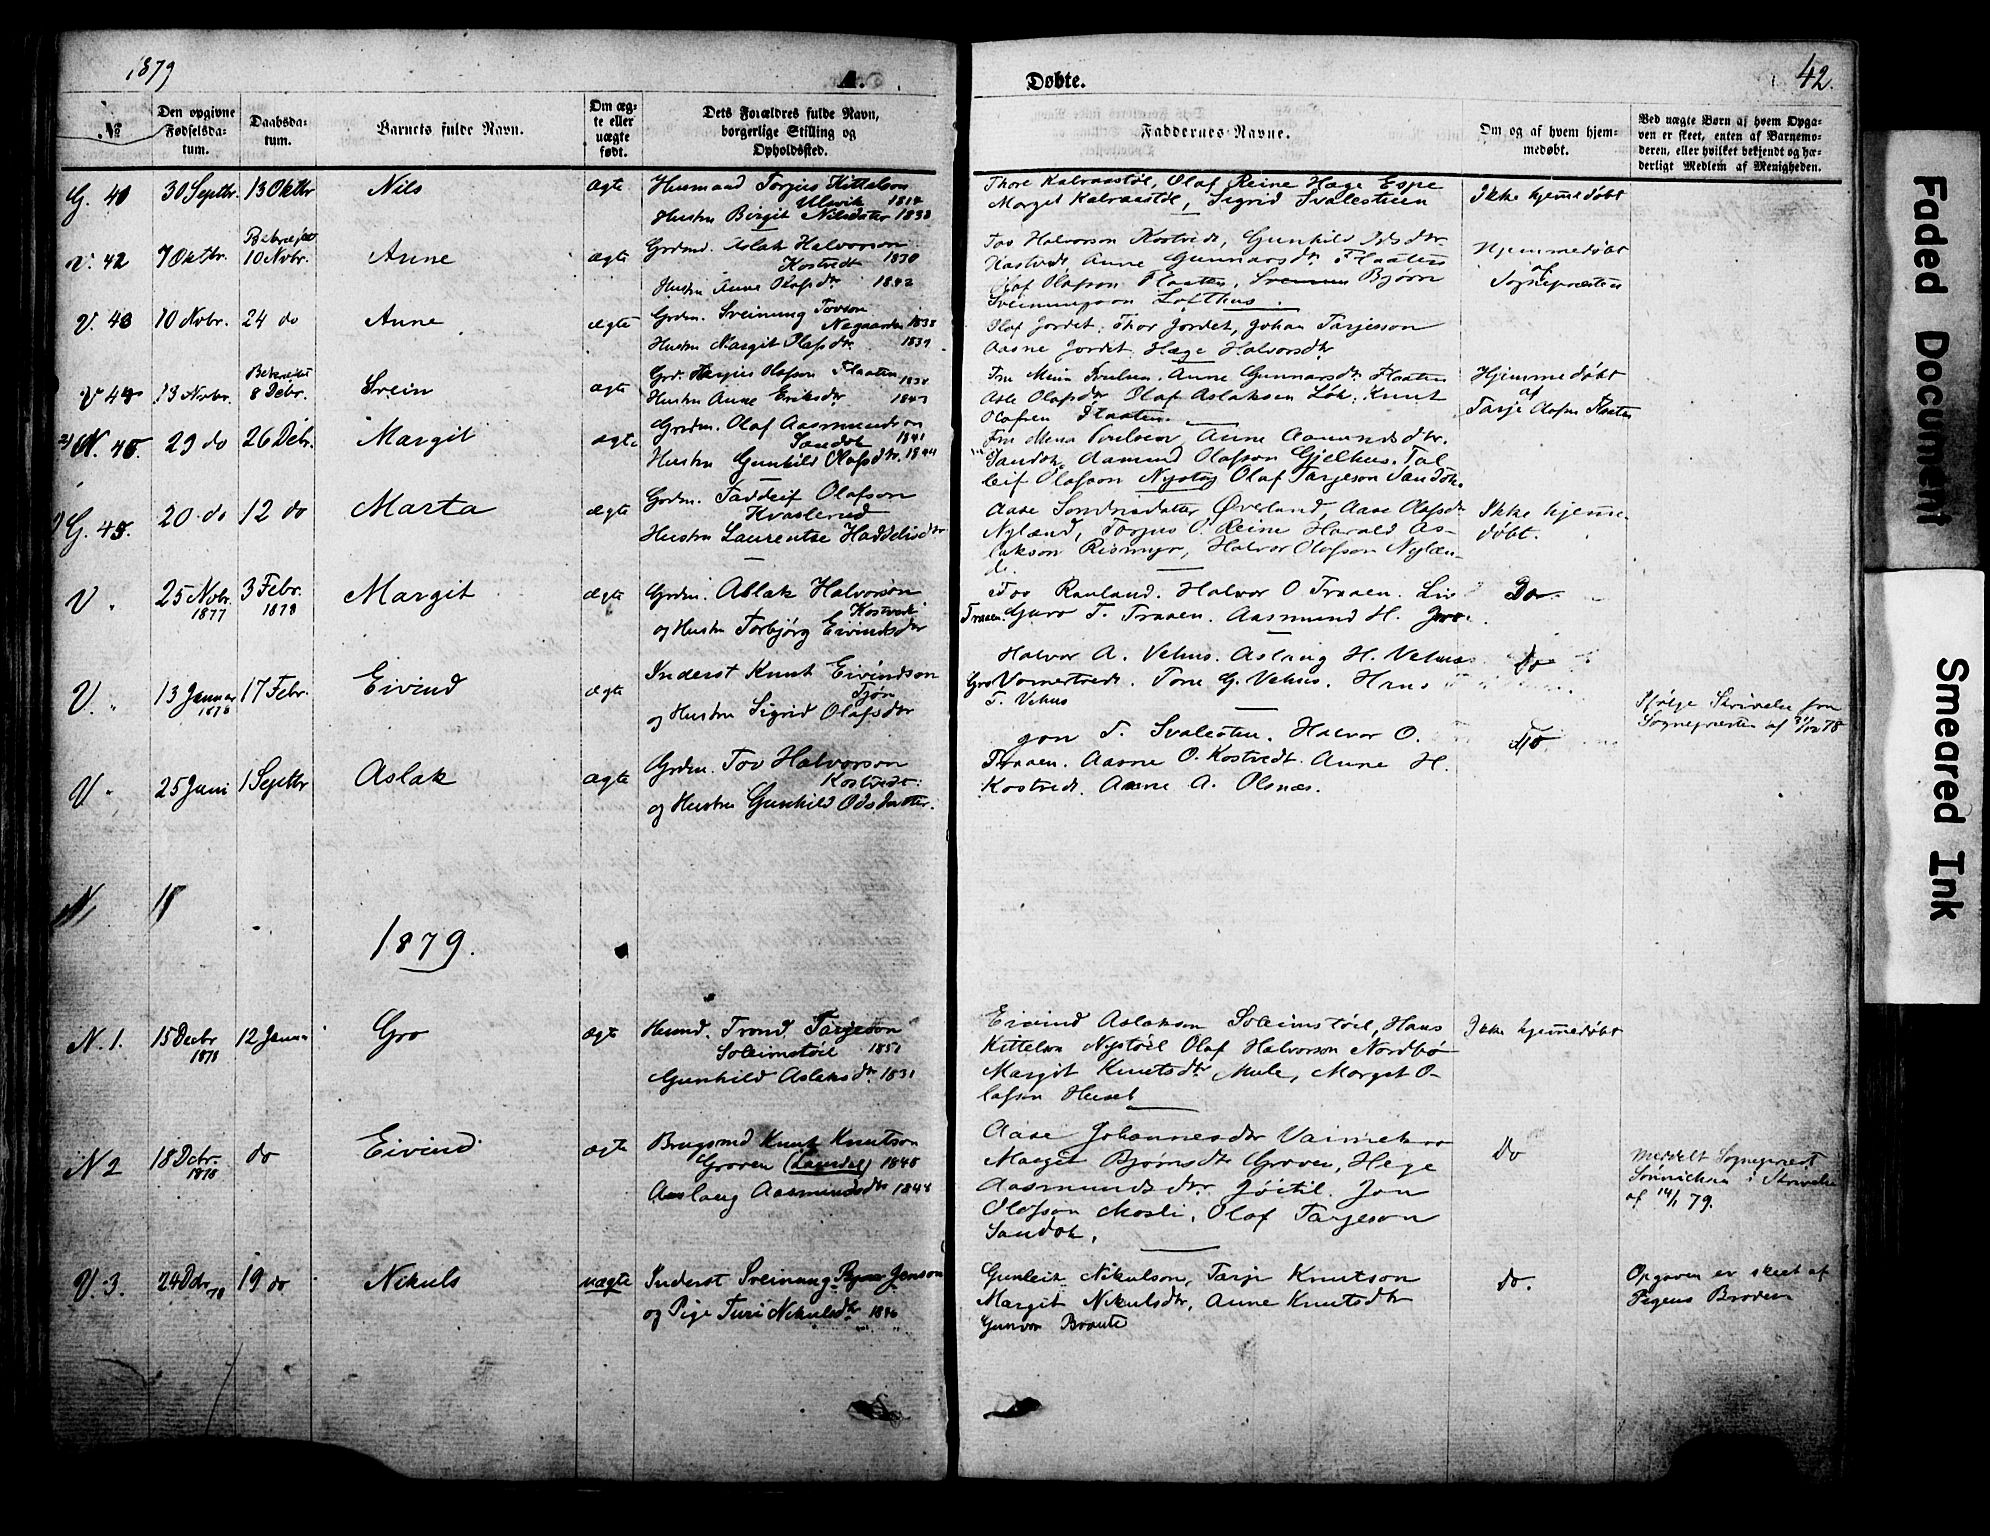 1879
A.
Døbte.
42.
№
Den opgivne Fødselsdatum.
Daabsdatum.
Barnets fulde Navn.
Om ægte eller uægte født.
Dets Forældres fulde Navn, borgerlige Stilling og Opholdssted.
Faddernes Navne.
Om og af hvem hjemmedøbt.
Ved uægte Børn af hvem Opgaven er skeet, enten af Barnemoderen, eller hvilket bekjendt og hæderligt Medlem af Menigheden.
G. 41 30 Septbr. 13 Oktbr Nils ægte Husmand Torjus Kittelson
Ulsvik 1814
Hustru Birgit Nilsdatter 1838
Thore Kalvaastøl, Olaf Reine Hæge Espe
Margit Kalvaastøl, Sigrid Svalestuen
Ikke hjemmedøbt
V. 42 7 Oktbr. 10 Novbr. Anne ægte Grdmd. Aslak Halvorson
Kostvedt 1830
Hustru Anne Olafsdtr 1842
Tov Halvorson Kostvedt, Gunhild Odsdtr.
Kostvedt Anne Gunnarsdtr Flaaten
Olaf Olafson Flaaten, Bjørn
Sveinungson Lofthus.
Hjemmedøbt
af
Sognepræsten
V. 43 10 Novbr. 24 do Anne ægte Grdm. Sveinung Tovson
Nagaarden 1838
Hustru Margit Olafsdtr 1839
Olaf Jordet, Thor Jordet, Johan Tarjesson
Aasne Jordet. Hæge Halvorsdtr
V 44 13 Novbr. 8 Debr. Svein ægte Grd. Olafson Flaaten
Hustru Anne Eriksdtr
Anne Gunnarsdtr Flaaten
Olafsdtr Olaf Aslaksen Løk, Knut
Olafsen Flaaten
Hjemmedøbt
af
Tarje Olafsn Flaaten
2) N. 45. 29 do 26 Debr. Margit ægte Grdm. Olaf Aasmundson
Sandok 1841
Hustru Gunhild Olafsdtr. 1844
Anne Aamundsdtr.
Sandok, Aamund Olafson Gjelhus. Tal
leif Olafson Nystog Olaf Tarjeson Sandok.
1) G. 45. 20 do 12 do Marta ægte Grdm. Taddeif Olafson
Kvaslerud
Hustru Laurentse Haddelisdtr
Aase Sondresdatter Øverland, Aase Olafsdtr
Nylænd, Torjus O. Reine Harald As-
lakson Rismyr, Halvor Olafson Nylæn-
de.
Ikke hjemme-
døbt.
V. 25 Novbr. 1877 3 Febr. 1878 Margit ægte Grdm. Aslak Halvorson
Kostvedt
og Hustru Torbjørg Eivindsdtr
Tov Rauland. Halvor O Traaen. Liv
Traaen. Guro T. Traaen. Aasmund H.
Do.
V. 13 Januar 1878 17 Febr. Eivind ægte Inderst Knut Eivindson
Tjøn
og Hustru Sigrid Olafsdtr
Halvor A. Vehus. Aslaug H. Vehus
Gro Vomertvedt. Tone G. Vehus. Hans
T. Vehus
Do
Ifølge Skrivelse fra
Sognepræsten af 31/12 78
V. 25 Juni 1 Septbr Aslak ægte Grdm. Tov Halvorson
Kostvedt.
og Hustru Gunhild Odsdatter.
T. Svalesten. Halvor O.
Traaen. Aasne O. Kostvedt. Anne H.
Kostvedt. Anne A. Olsnæs.
Do
N 18
1879.
N. 1. 15 Decbr 1878 12 Januar Gro ægte Husmd. Trond Tarjeson
Soleimstøil 1851
Gunhild Aslaksdtr. 1831
Eivind Aslakson Soleimstøil, Hans
Kittelson Nystøil Olaf Halvorson Nordbø
Margit Knutsdtr Mule, Morget O-
lafson Huset
Ikke hjemmedøbt
N 2 18 Debr. 1878 do Eivind ægte Brugsmd Knut Knutson
Groven 1848
Aaslaug Aasmundsdtr 1848
Aase Johannesdtr
Marget Bjørnsdtr Groven, Hege
Aasmundsdtr. Jøitil. Jon
Olafson Mosli, Olaf Tarjeson
Sandok.
Do
Meddelt Sognepræst
Sønnichsen i Skrivelse
af 14/1 79.
V. 3. 24 Dcbr 78 19 do Nikuls uægte Inderst Sveinung Jonson
og Pige Turi Nikulsdtr 1846
Gunleik Nikulson, Tarje Knutson
Margit Nikulsdtr, Anne Knutsdtr
Gunvor Braate
do.
Opgaven er skeet af
Pigens Broder
Faded Document
Smeared Ink